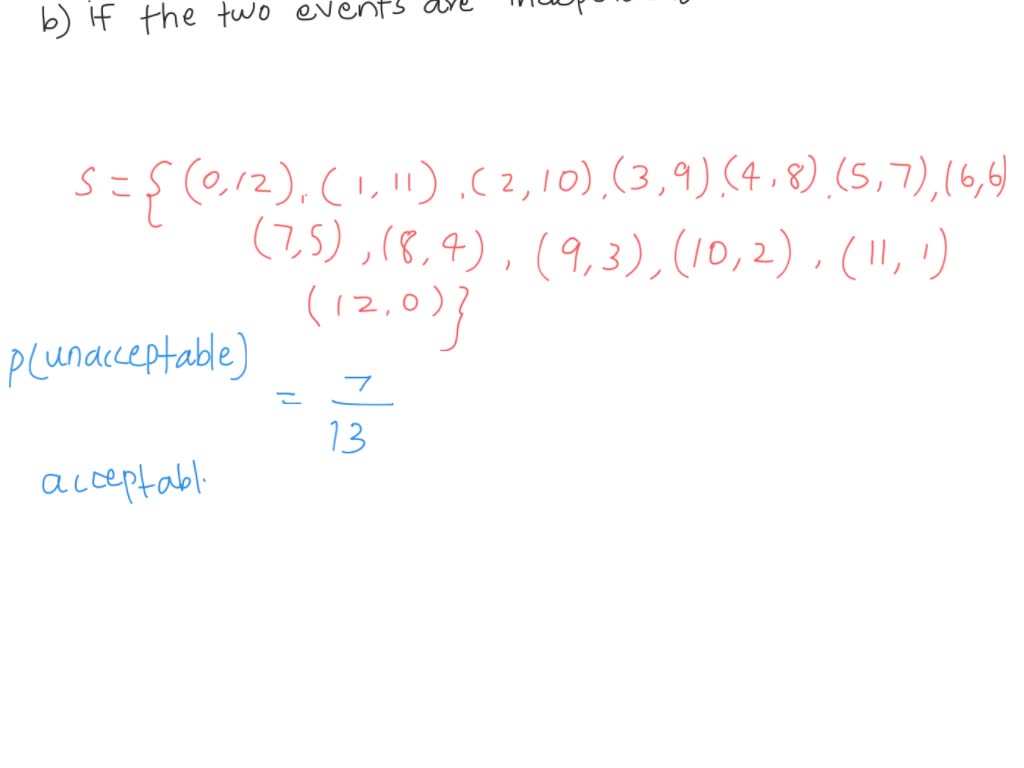 b) if the two events are
S = { (0,12), (1,11), (2,10), (3,9), (4,8), (5,7), (6,6)
(7,5), (8,4), (9,3), (10,2), (11,1)
(12,0)}
p(unacceptable)
= 7/13
acceptabl